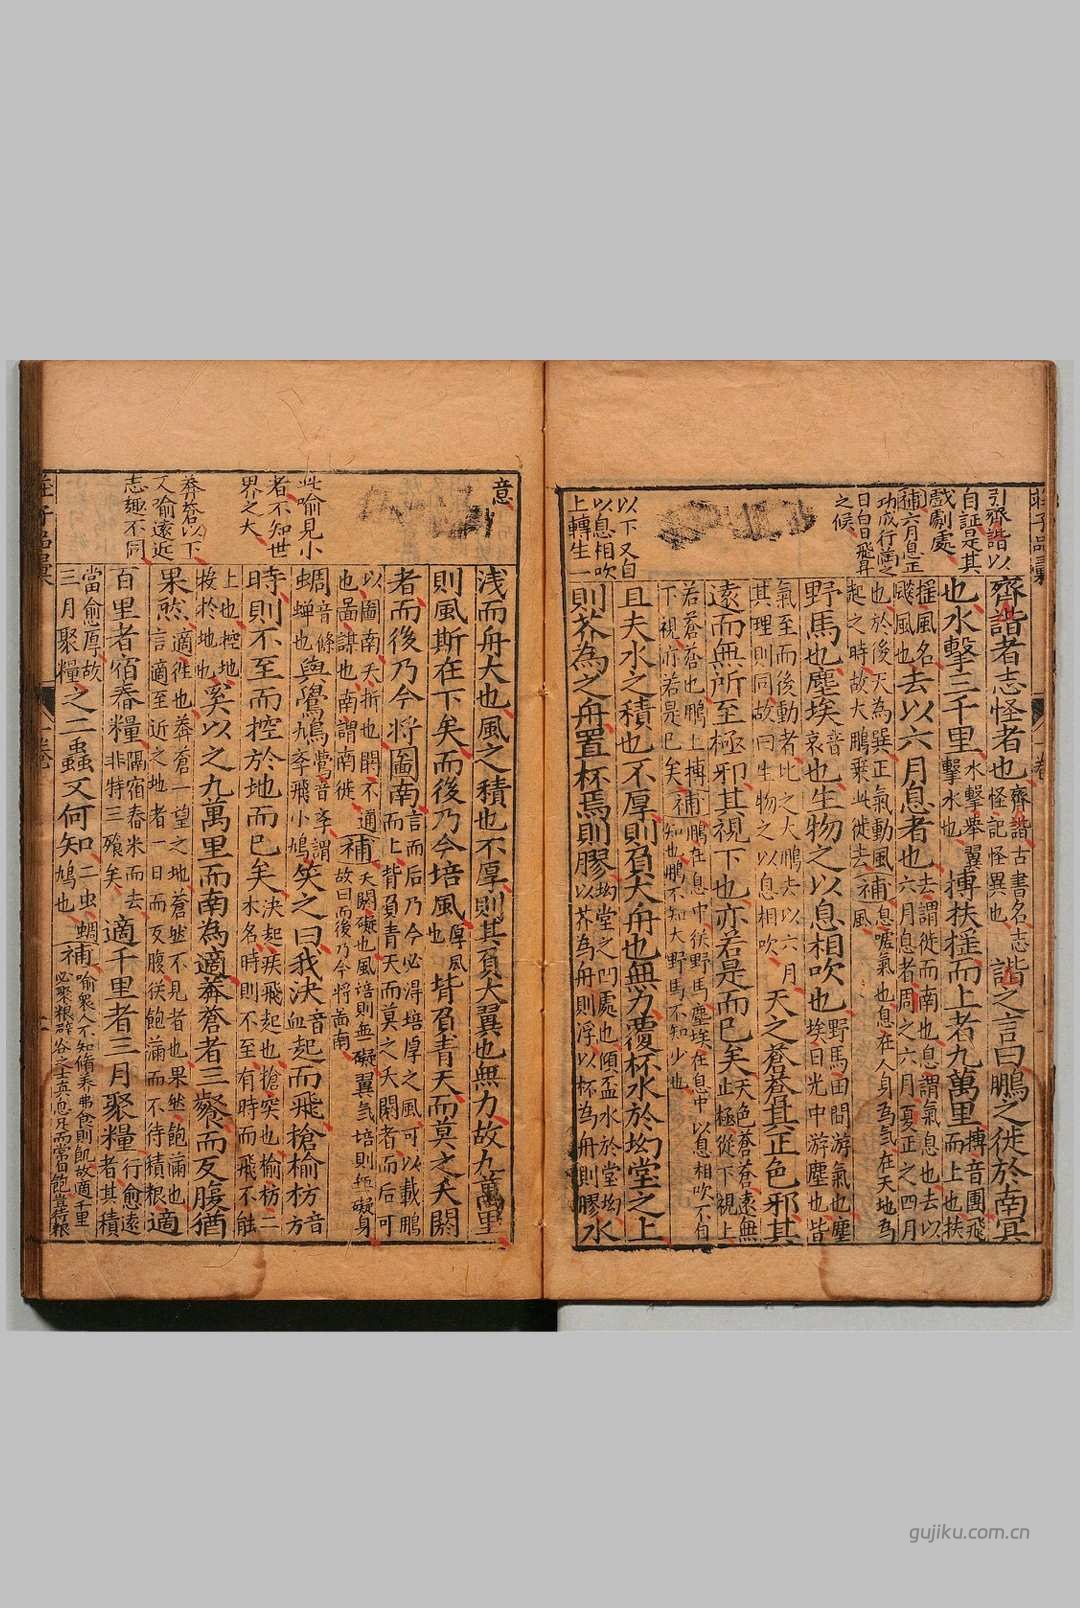 莊子品彙
一卷
引齊諧以
自証是其
戲劇處
補六月息正
功成行滿之
日白日飛昇
之候
以下又自
以息相吹
上轉生一
齊諧者志怪者也齊諧古書名志怪記怪異也諧之言曰鵬之徙於南冥
也水擊三千里水擊舉翼擊水也搏扶搖而上者九萬里搏音團飛而上也扶
搖風名颷風也去以六月息者也去謂徙而南也息謂氣息也去以六月息者周之六月夏正之四月
也於後天為巽正氣動風起之時故大鵬乘此徙去補息噓氣也息在人身為氣在天地為風
野馬也塵埃音哀也生物之以息相吹也野馬田間游氣也塵埃日光中游塵也皆
氣至而後動者比之大鵬去以六月其理則同故曰生物之以息相吹天之蒼蒼其正色邪其
遠而無所至極邪其視下也亦若是而已矣天色蒼蒼遠無止極從下視上
若蒼蒼也鵬上摶下視亦若是已矣補鵬在息中徙野馬塵埃在息中以息相吹不自知也鵬不知大野馬不知少也
且夫水之積也不厚則負大舟也無力覆杯水於坳堂之上
則芥為之舟置杯焉則膠坳堂堂之凹處也傾盃水於堂坳以芥為舟則浮以杯為舟則膠水
意
此喻見小
者不知世
界之大
莽蒼以下
又喻遠近
志趣不同
淺而舟大也風之積也不厚則其負大翼也無力故九萬里
則風斯在下矣而後乃今培風厚風也背負青天而莫之夭閼
者而後乃今將圖南言而后乃今必得培厚之風可以載鵬而上背負青天而莫之夭閼者而后可
以圖南夭折也閼不通也圖謀也南謂南徙補夭閼礙也風培則無礙翼氣培則無礙身故曰而後乃今將啚南
蜩音條蟬也與鷽鳩鷽音李謂李飛小鳩笑之曰我決音血起而飛搶榆枋音方
時則不至而控於地而已矣決起疾飛起也搶突也榆枋二木名時則不至有時而飛不能
上也控地投於地也奚以之九萬里而南為適莽蒼者三餐而反腹猶
果然適往也莽蒼一望之地蒼然不見者也果然飽滿也言適至近之地者一日而反腹猶飽滿而不待積粮適
百里者宿舂糧隔宿舂米而去非特三飱矣適千里者三月聚糧行愈遠者其積
當愈厚故三月聚糧之二蟲又何知二虫蜩鳩也補喻衆人不知脩養弗食則飢故適千里必聚粮